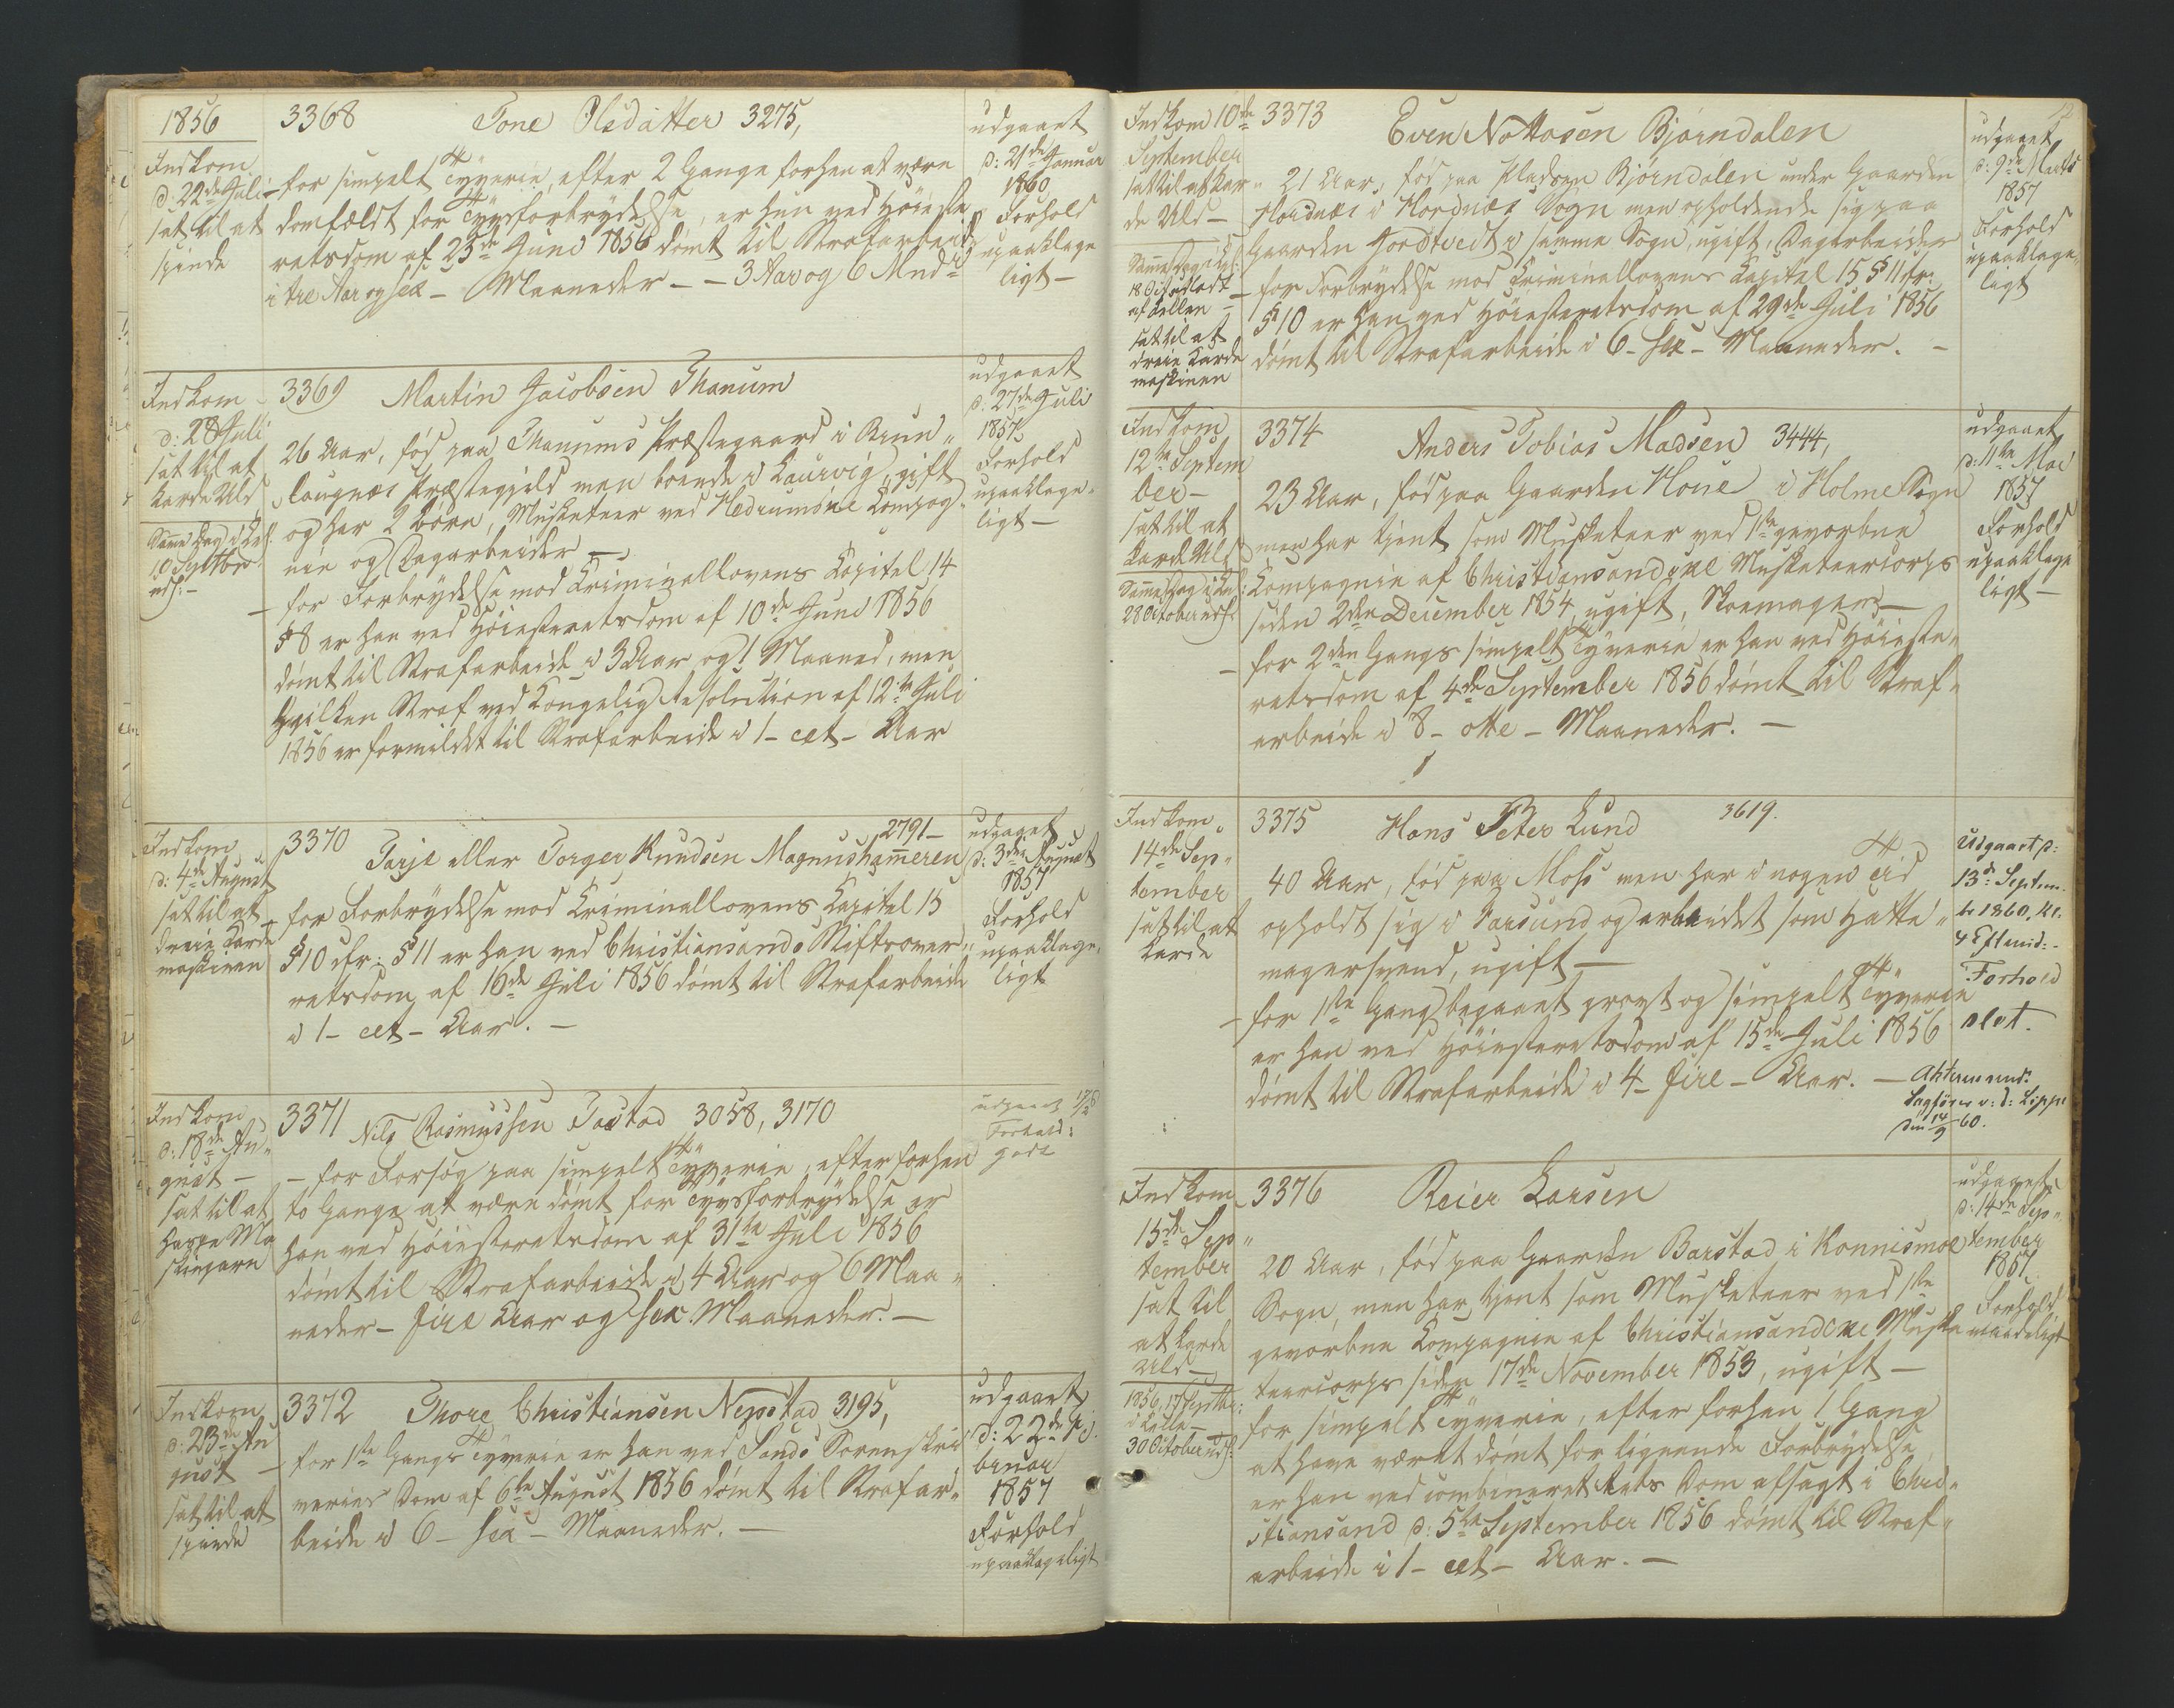 1856
Indkom
d: 22de Juli
sat til at
spinde
3368 Tone Olsdatter 3275,
- for simpelt Tyverie, efter 2 Gange forhen at være
domfældt for Tyvsforbrydelse, er hun ved Höieste
retsdom af 23de Juni 1856 dömt til Strafarbeide
i tre Aar og sex - Maaneder - - 3 Aar og 6 Mndr
udgaaet
d: 21de Januar
1860
Forhold
upaaklage
ligt -
Indkom
d: 28 Juli
sat til at
karde Uld
Samme Dag i Cel
10 Septbr
uds: -
3369 Martin Jacobsen Thanum
26 Aar, föd paa Thanums Præstegaard i Brun„
laugnes Præstegjeld men boende i Laurvig, gift
og har 2 börn, Musketeer ved Hedrumske Kompag„
nie og Dagarbeider -
- for Forbrydelse mod Criminallovens Capitel 14
§ 8 er han ved Höiesteretsdom af 10de Juni 1856
dömt til Strafarbeide i 3 Aar og 1 Maaned, men
hvilken Straf ved Kongelig Resolution af 12te Juli
1856 er formildet til Strafarbeide i 1 - eet - Aar
udgaaet
d: 27de Juli
1857
Forhold
upaaklage„
ligt -
Indkom
d: 4de August
sat til at
dreie Karde
maskinen
3370 2791 -
Tarje eller Torger Knudsen Magnushammeren
- for Forbrydelse mod Criminallovens Capitel 15
§ 10 cfr: § 11 er han ved Christiansands Stiftsover„
retsdom af 16de Juli 1856 dömt til Strafarbeide
i 1 - eet - Aar. -
udgaaet
d: 3die August
1857
Forhold
upaaklage„
ligt
Indkom
d: 18de Au„
gust -
sat til at
haspe Ma
skingarn
3371 Nils Rasmussen Tastad 3058, 3170
- for Forsög paa simpelt Tyverie, efter forhen
to Gange at være dömt for Tyvsforbrydelse er
han ved Höiesteretsdom af 31te Juli 1856
dömt til Strafarbeide i 4 Aar og 6 Maa„
neder - fire Aar og sex Maaneder. -
udgaaet
Forhold:
godt
Indkom
d: 23de Au
gust -
sat til at
spinde
3372 Thore Christiansen Nepstad 3195,
for 1ste Gangs Tyverie er han ved Sands Sorenskri
veries Dom af 6te August 1856 dömt til Strafar„
beide i 6 - sex - Maaneder. -
udgaaet
d: 22de Fe
bruar
1857
Forhold
upaaklageligt
Indkom 10de
September
sat til at kar„
de Uld -
Samme Dag i Cel:
18 October udladt
af Cellen -
sat til at
dreie Karde
maskinen
3373 Even Nottosen Bjørndalen
21 Aar, föd paa Pladsen Bjørndalen under Gaarden
Hordnæs i Hordnæs Sogn men opholdende sig paa
Gaarden Jordtvedt i samme Sogn, ugift, Dagarbeider
- for Forbrydelse mod Criminallovens Capitel 15 § 11 cfr:
§ 10 er han ved Höiesteretsdom af 29de Juli 1856
dömt til Strafarbeide i 6 - sex - Maaneder. -
udgaaet
d: 9de Marts
1857
Forhold
upaaklage„
ligt
Indkom
12te Septem
ber -
sat til at
karde Uld
Samme Dag i Cel:
28 October uds:
3374 Anders Tobias Madsen 3444,
23 Aar, föd paa Gaarden Houe i Holme Sogn
men har tjent som Musketeer ved 1ste gevorbne
Compagnie af Christiansandske Musketeercorps
siden 2den December 1854, ugift, Skomager -
- for 2den Gangs simpelt Tyverie er han ved Höieste„
retsdom af 4de September 1856 dömt til Straf„
arbeide i 8 - otte - Maaneder. -
udgaaet
d: 11te Mai
1857
Forhold
upaaklage
ligt -
Indkom
14de Sep„
tember
sat til at
karde
3375 Hans Peter Lund 3619.
40 Aar, föd paa Moss men har i nogen Tid
opholdt sig i Farsund og arbeidet som Hatte„
magersvend, ugift -
- for 1ste Gang begaaet grovt og simpelt Tyverie
er han ved Höiesteretsdom af 15de Juli 1856
dömt til Strafarbeide i 4 - fire - Aar. -
Udgaaet d:
13de Septem„
br 1860, Kl.
4 Eftmid: -
Forhold
slet.
Sagförer v: d: Lippe
14/9 60.
Indkom
15de Sep„
tember
sat til
at karde
Uld -
1856, 17 Septbr:
i Celle -
30 October uds:
3376 Reier Larsen
20 Aar, föd paa Gaarden Barstad i Konnismoe
Sogn, men har tjent som Musketeer ved 1ste
gevorbne Compagnie af Christiansandske Muske
teercorps siden 17de November 1853, ugift -
for simpelt Tyverie, efter forhen 1 Gang
at have været dömt for lignende Forbrydelse
er han ved combineret Rets Dom afsagt i Chri„
stiansand d: 5te September 1856 dömt til Straf„
arbeide i 1 - eet - Aar. -
udgaaet
d: 14de Sep„
tember
1857
Forhold
maadeligt